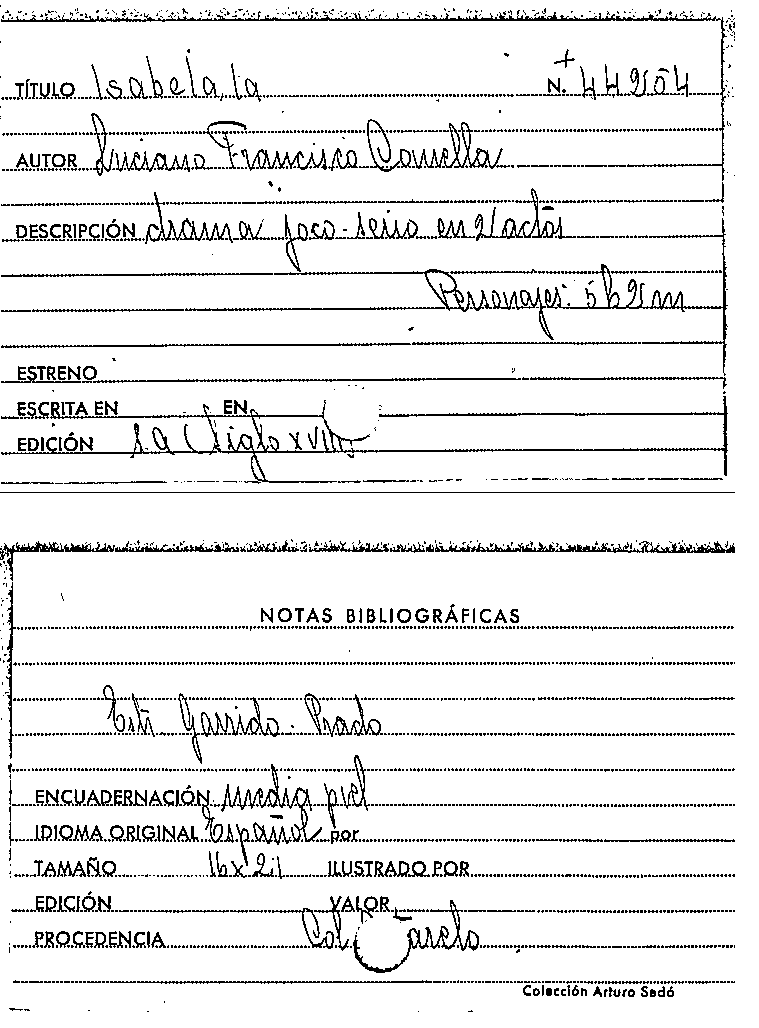 TÍTULO Isabela, la N. + 44204
AUTOR Luciano Francisco Comella
DESCRIPCIÓN drama joco-serio en 2 actos
Personajes: 5 h 2 m
ESTRENO
ESCRITA EN EN
EDICIÓN s.a (Siglo XVIII)
NOTAS BIBLIOGRÁFICAS
Estr Garrido-Prado
ENCUADERNACIÓN media piel
IDIOMA ORIGINAL Español por
TAMAÑO 16x21 ILUSTRADO POR
EDICIÓN VALOR
PROCEDENCIA Col.
Colección Arturo Sedó